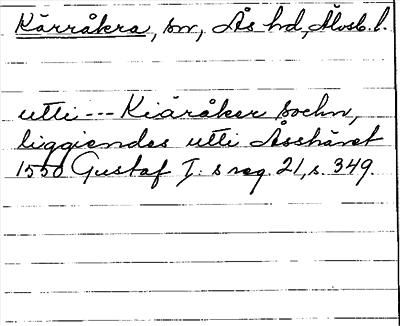 Kärråkra, sn, Ås hd, Älvsb. l.
utti --- Kiäråker sochn,
liggiendes utti Åsshäret
1550 Gustaf I: s reg. 21, s. 349.